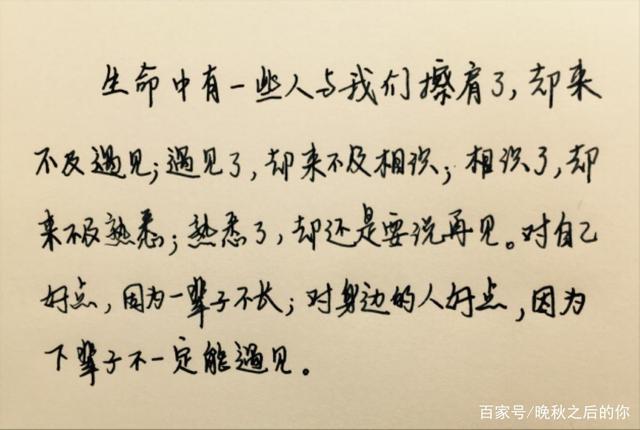 生命中有一些人与我们擦肩了，却来
不及遇见；遇见了，却来不及相识；相识了，却
来不及熟悉；熟悉了，却还是要说再见。对自己
好点，因为一辈子不长；对身边的人好点，因为
下辈子不一定能遇见。
百家号/晚秋之后的你